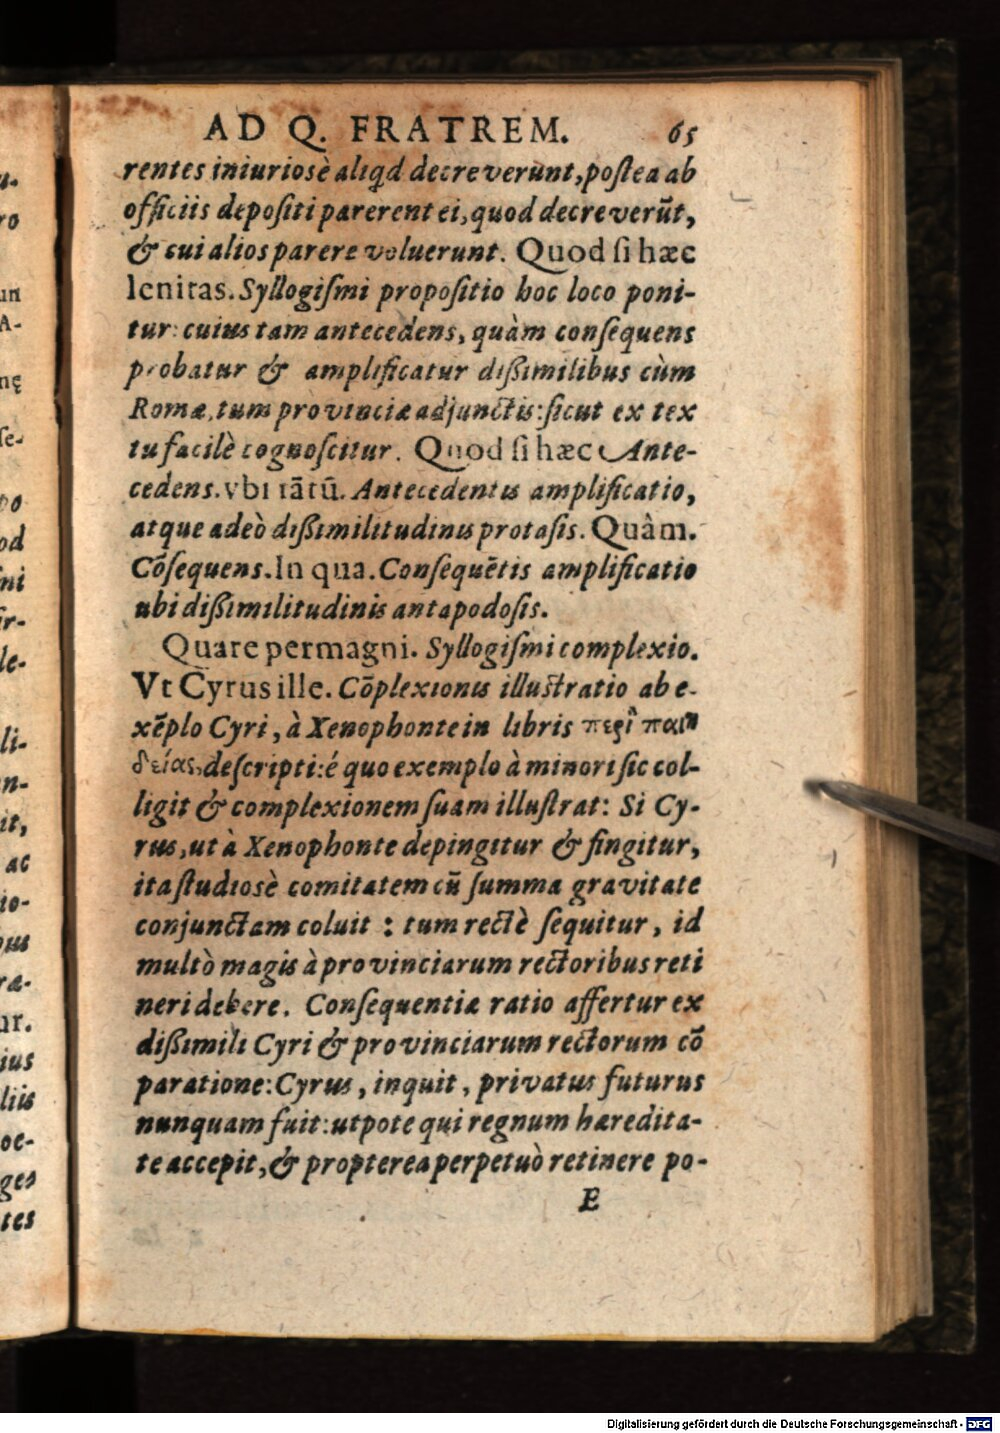 AD Q. FRATREM. 65
rentes iniuriosè aliqd decreverunt, postea ab
officiis depositi parerent ei, quod decreverūt,
& cui alios parere voluerunt. Quod si hæc
lenitas. Syllogismi propositio hoc loco poni-
tur: cuius tam antecedens, quàm consequens
probatur & amplificatur dissimilibus cùm
Romæ, tum provinciæ adjunctis: sicut ex tex
tu facilè cognoscitur. Quod si hæc Ante-
cedens. vbi tātū. Antecedentis amplificatio,
atque adeò dissimilitudinis protasis. Quâm.
Cōsequens. In qua. Consequētis amplificatio
ubi dissimilitudinis antapodosis.
Quare permagni. Syllogismi complexio.
Vt Cyrus ille. Cōplexionis illustratio ab e-
xēplo Cyri, à Xenophonte in libris περὶ παι
δείας, descripti: é quo exemplo à minori sic col-
ligit & complexionem suam illustrat: Si Cy-
rus, ut à Xenophonte depingitur & fingitur,
ita studiosè comitatem cū summa gravitate
conjunctam coluit : tum rectè sequitur, id
multò magis à provinciarum rectoribus reti
neri debere. Consequentiæ ratio affertur ex
dissimili Cyri & provinciarum rectorum cō
paratione: Cyrus, inquit, privatus futurus
nunquam fuit: utpote qui regnum hæredita-
te accepit, & propterea perpetuò retinere po-
E
u-
ro
un
A-
nę
se-
po
od
sni
ir-
le-
li-
n-
it,
ac
io-
bus
ræ-
ur.
ius
liis
oc-
ges
tes
Digitalisierung gefördert durch die Deutsche Forschungsgemeinschaft - DFG